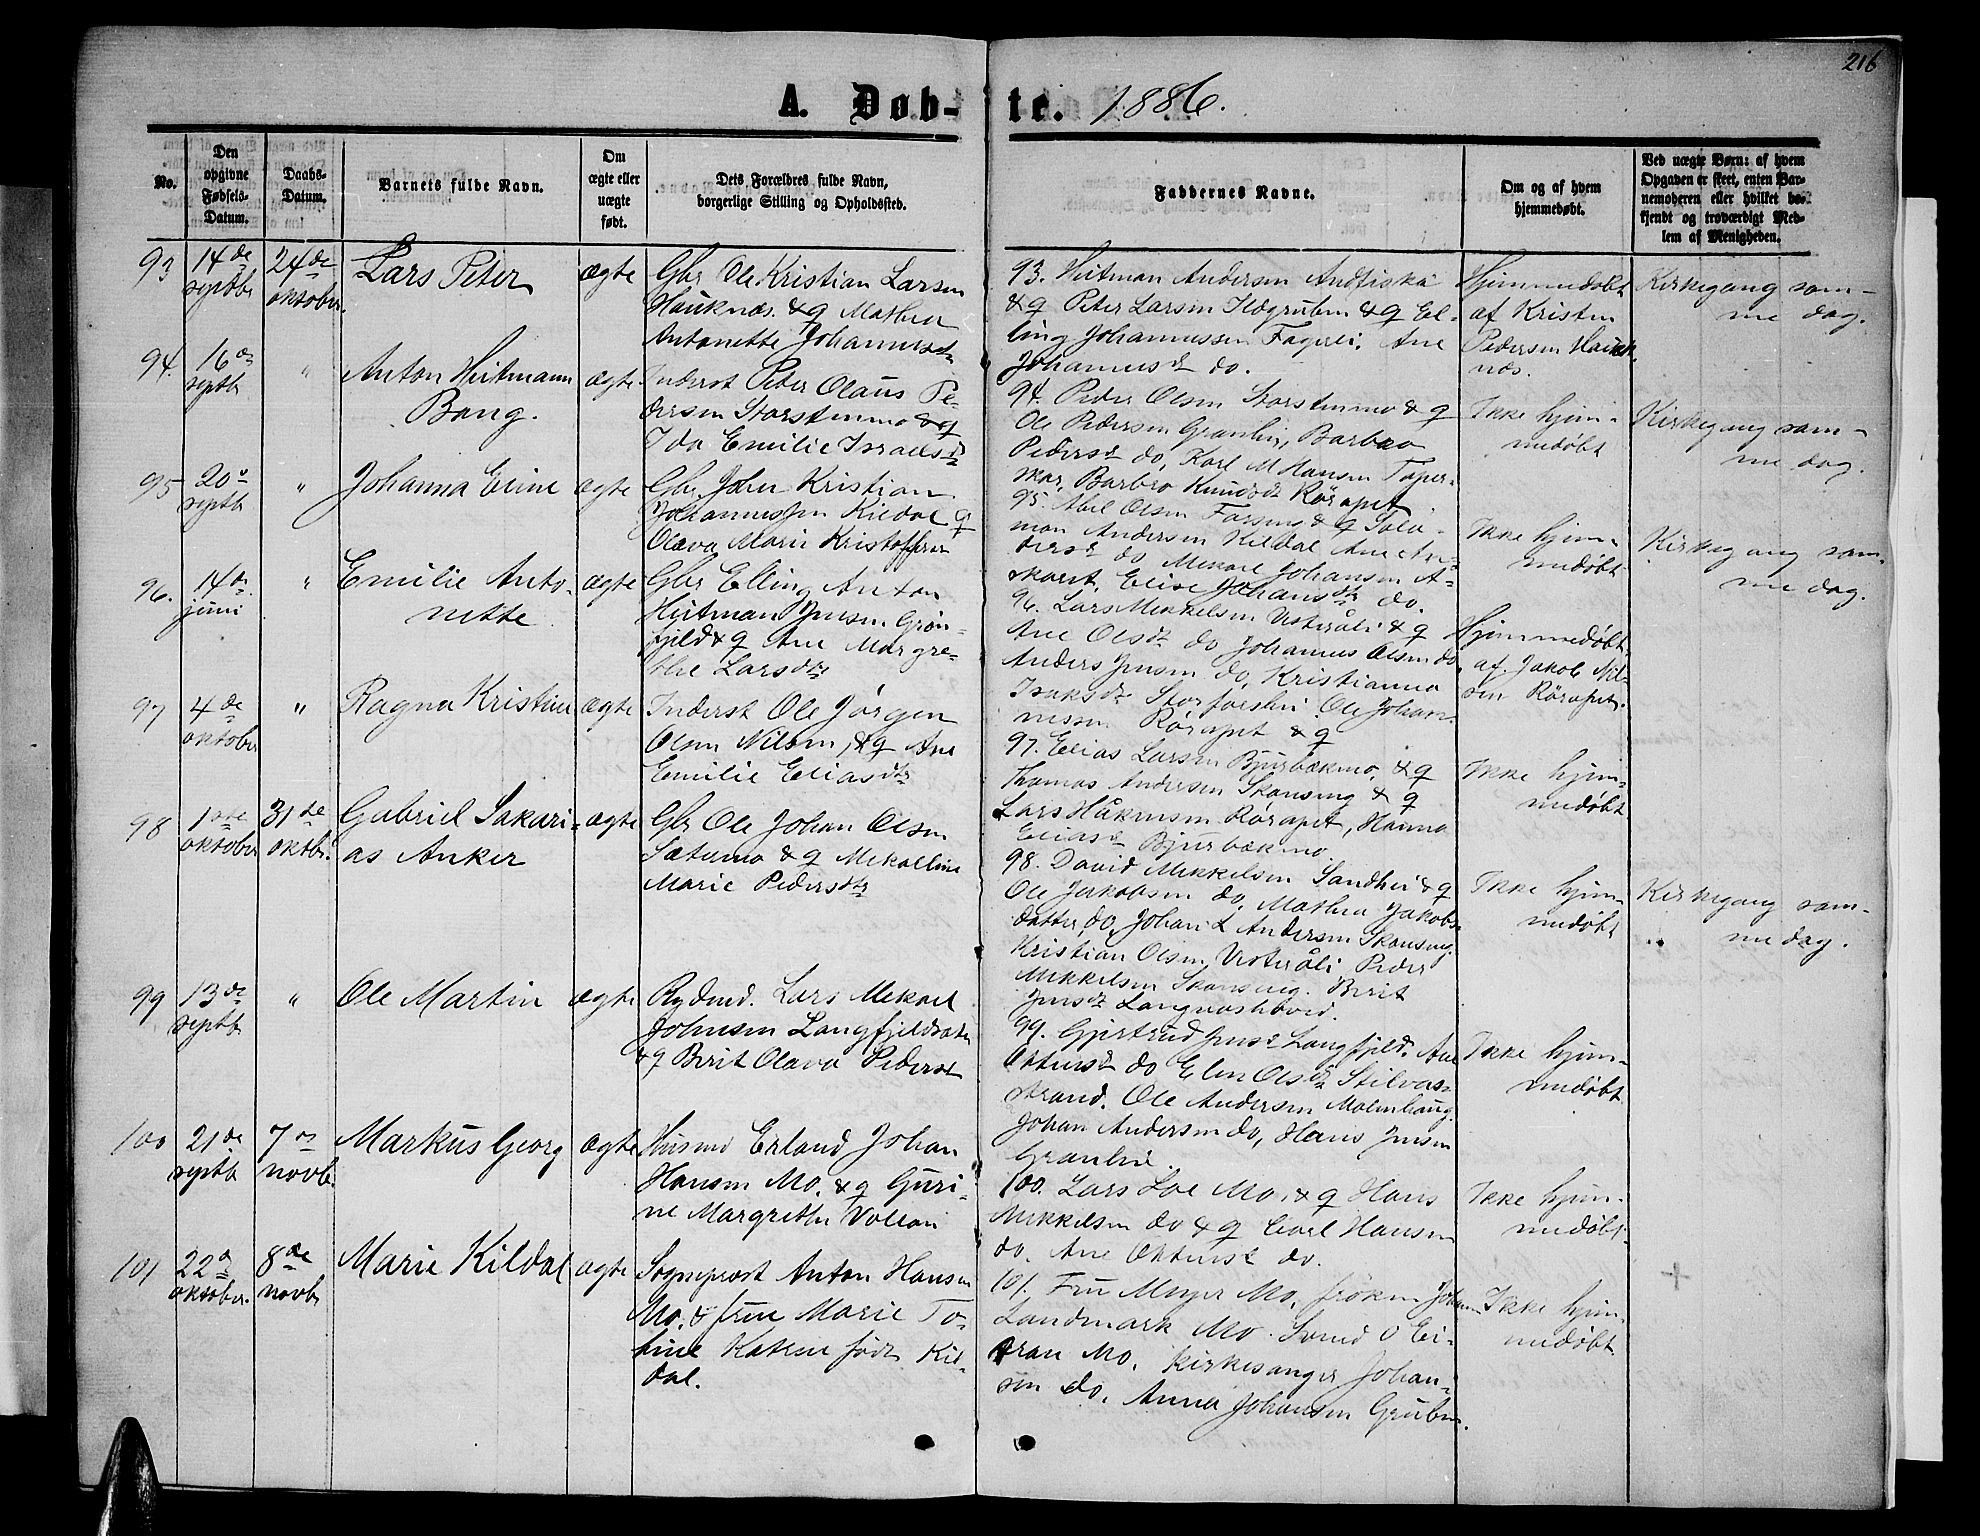 216
A. Døb-te. 1886.
No.
Den opgivne Fødsels-Datum.
Daabs-Datum.
Barnets fulde Navn.
Om ægte eller uægte født.
Dets Forældres fulde Navn, borgerlige Stilling og Opholdssted.
Faddernes Navne.
Om og af hvem hjemmedøbt.
Ved uægte Børn: af hvem Opgaven er skeet, enten Barnemoderen eller hvilket bekjendt og troværdigt Medlem af Menigheden.
93 14de septbr 24de oktober. Lars Peter ægte
Gbr Ole Kristian Larsen
Hauknæs. & q Mathea
Antonette Johannesdtr
93. Heitman Andersen Andfiskå
& q Peter Larsen Ildgruben & q El-
ling Johannessen Fagerli, Ane
Johannesdtr do.
Hjemmedøbt
af Kristen
Pedersen Hauk-
næs.
Kirkegang sam-
me dag.
94. 16de septbr " Anton Heitmann
Bang. ægte.
Inderst Peder Olaus Pe-
dersen Storstenmo & q
Ida Emilie Israelsdtr
94. Peder Olsen Storstenmo & q
Ole Pedersen Granlien, Barbro
Pedersdt do, Karl M Hansen Toper-
skar, Barbro Knudsdt Røraget
Ikke hjem-
medøbt
Kirkegang sam-
me dag.
95 20de septbr " Johanna Eline ægte
Gbr John Kristian
Johannessen Kildal q
Olava Marie Kristoffersen
95. Abel Olsen Forsmo & q Solo-
mon Andersen Kildal Ane An-
dersdt do Mekael Johansen A-
skoret, Elise Johansdtr do.
Ikke hjem-
medøbt
Kirkegang sam-
me dag.
96. 14de juni " Emilie Anto-
nette ægte
Gbr Elling Anton
Heitman Jensen Grøn-
fjeld & q Ane Margre-
the Larsdtr
96. Lars Mikkelsen Vesteråli & q
Ane Olsdt do Johannes Olsen do.
Anders Jensen do, Kristianna
Isaksdt Storforshei. Ole Johan-
nessen Røraget & q
Hjemmedøbt
af Jakob Nil-
sen Røraget.
97 4de oktober " Ragna Kristine ægte
Inderst Ole Jørgen
Olsen Nilsmo, & q Ane
Emilie Eliasdtr
97. Elias Larsen Bjurbækmo, & q
Thomas Andersen Skonseng & q
Lars Håkensen Røraget, Hanna
Eliasdt Bjurbækmo.
Ikke hjem-
medøbt
98 1ste oktober 31te oktbr. Gabriel Sakari-
as Anker ægte
Gbr Ole Johan Olsen
Sætermo & q Mekalline
Marie Pedersdtr
98. David Mikkelsen Sandhei & q
Ole Jakobsen do, Mathea Jakobs-
datter, do, Johan L Andersen Skonseng,
Kristian Olsen Vesteråli, Peder
Mikkelsen Skonseng. Berit
Jensdt Langvashoved.
Ikke hjem-
medøbt
Kirkegang sam-
me dag.
99 13de septb " Ole Martin ægte
Rydmd. Lars Mekael
Johnsen Langfjeld
& q Berit Olava Pedersdt
99. Gjertrud Jensdt Langfjeld. Ane
Ottersdt do Elen Olsdtr Stilvas-
strand. Ole Andersen Molmhaug
Johan Andersen do, Hans Jensen
Granlie.
Ikke hjem-
medøbt
100 21de septb 7de novbr. Markus Georg ægte
Husmd Erland Johan
Hansen Mo. & q Guri-
ne Margrethe Vollan
100. Lars Loe Mo. & q Hans
Mikkelsen do & q Carl Hansen
do. Ane Ottersdt do.
Ikke hjem-
medøbt.
101 22de oktober. 8de novbr Marie Kildal ægte
Sogneprest Anton Hansen
Mo. & frue Marie To-
bine Katrine født Kil-
dal.
101. Fru Meyer Mo, frøken Johan
Landmark Mo. Svend O Ei-
tran Mo, kirkesanger Johan-
sen do, Anna Johansen Gruben.
Ikke hjem-
medøbt.
+